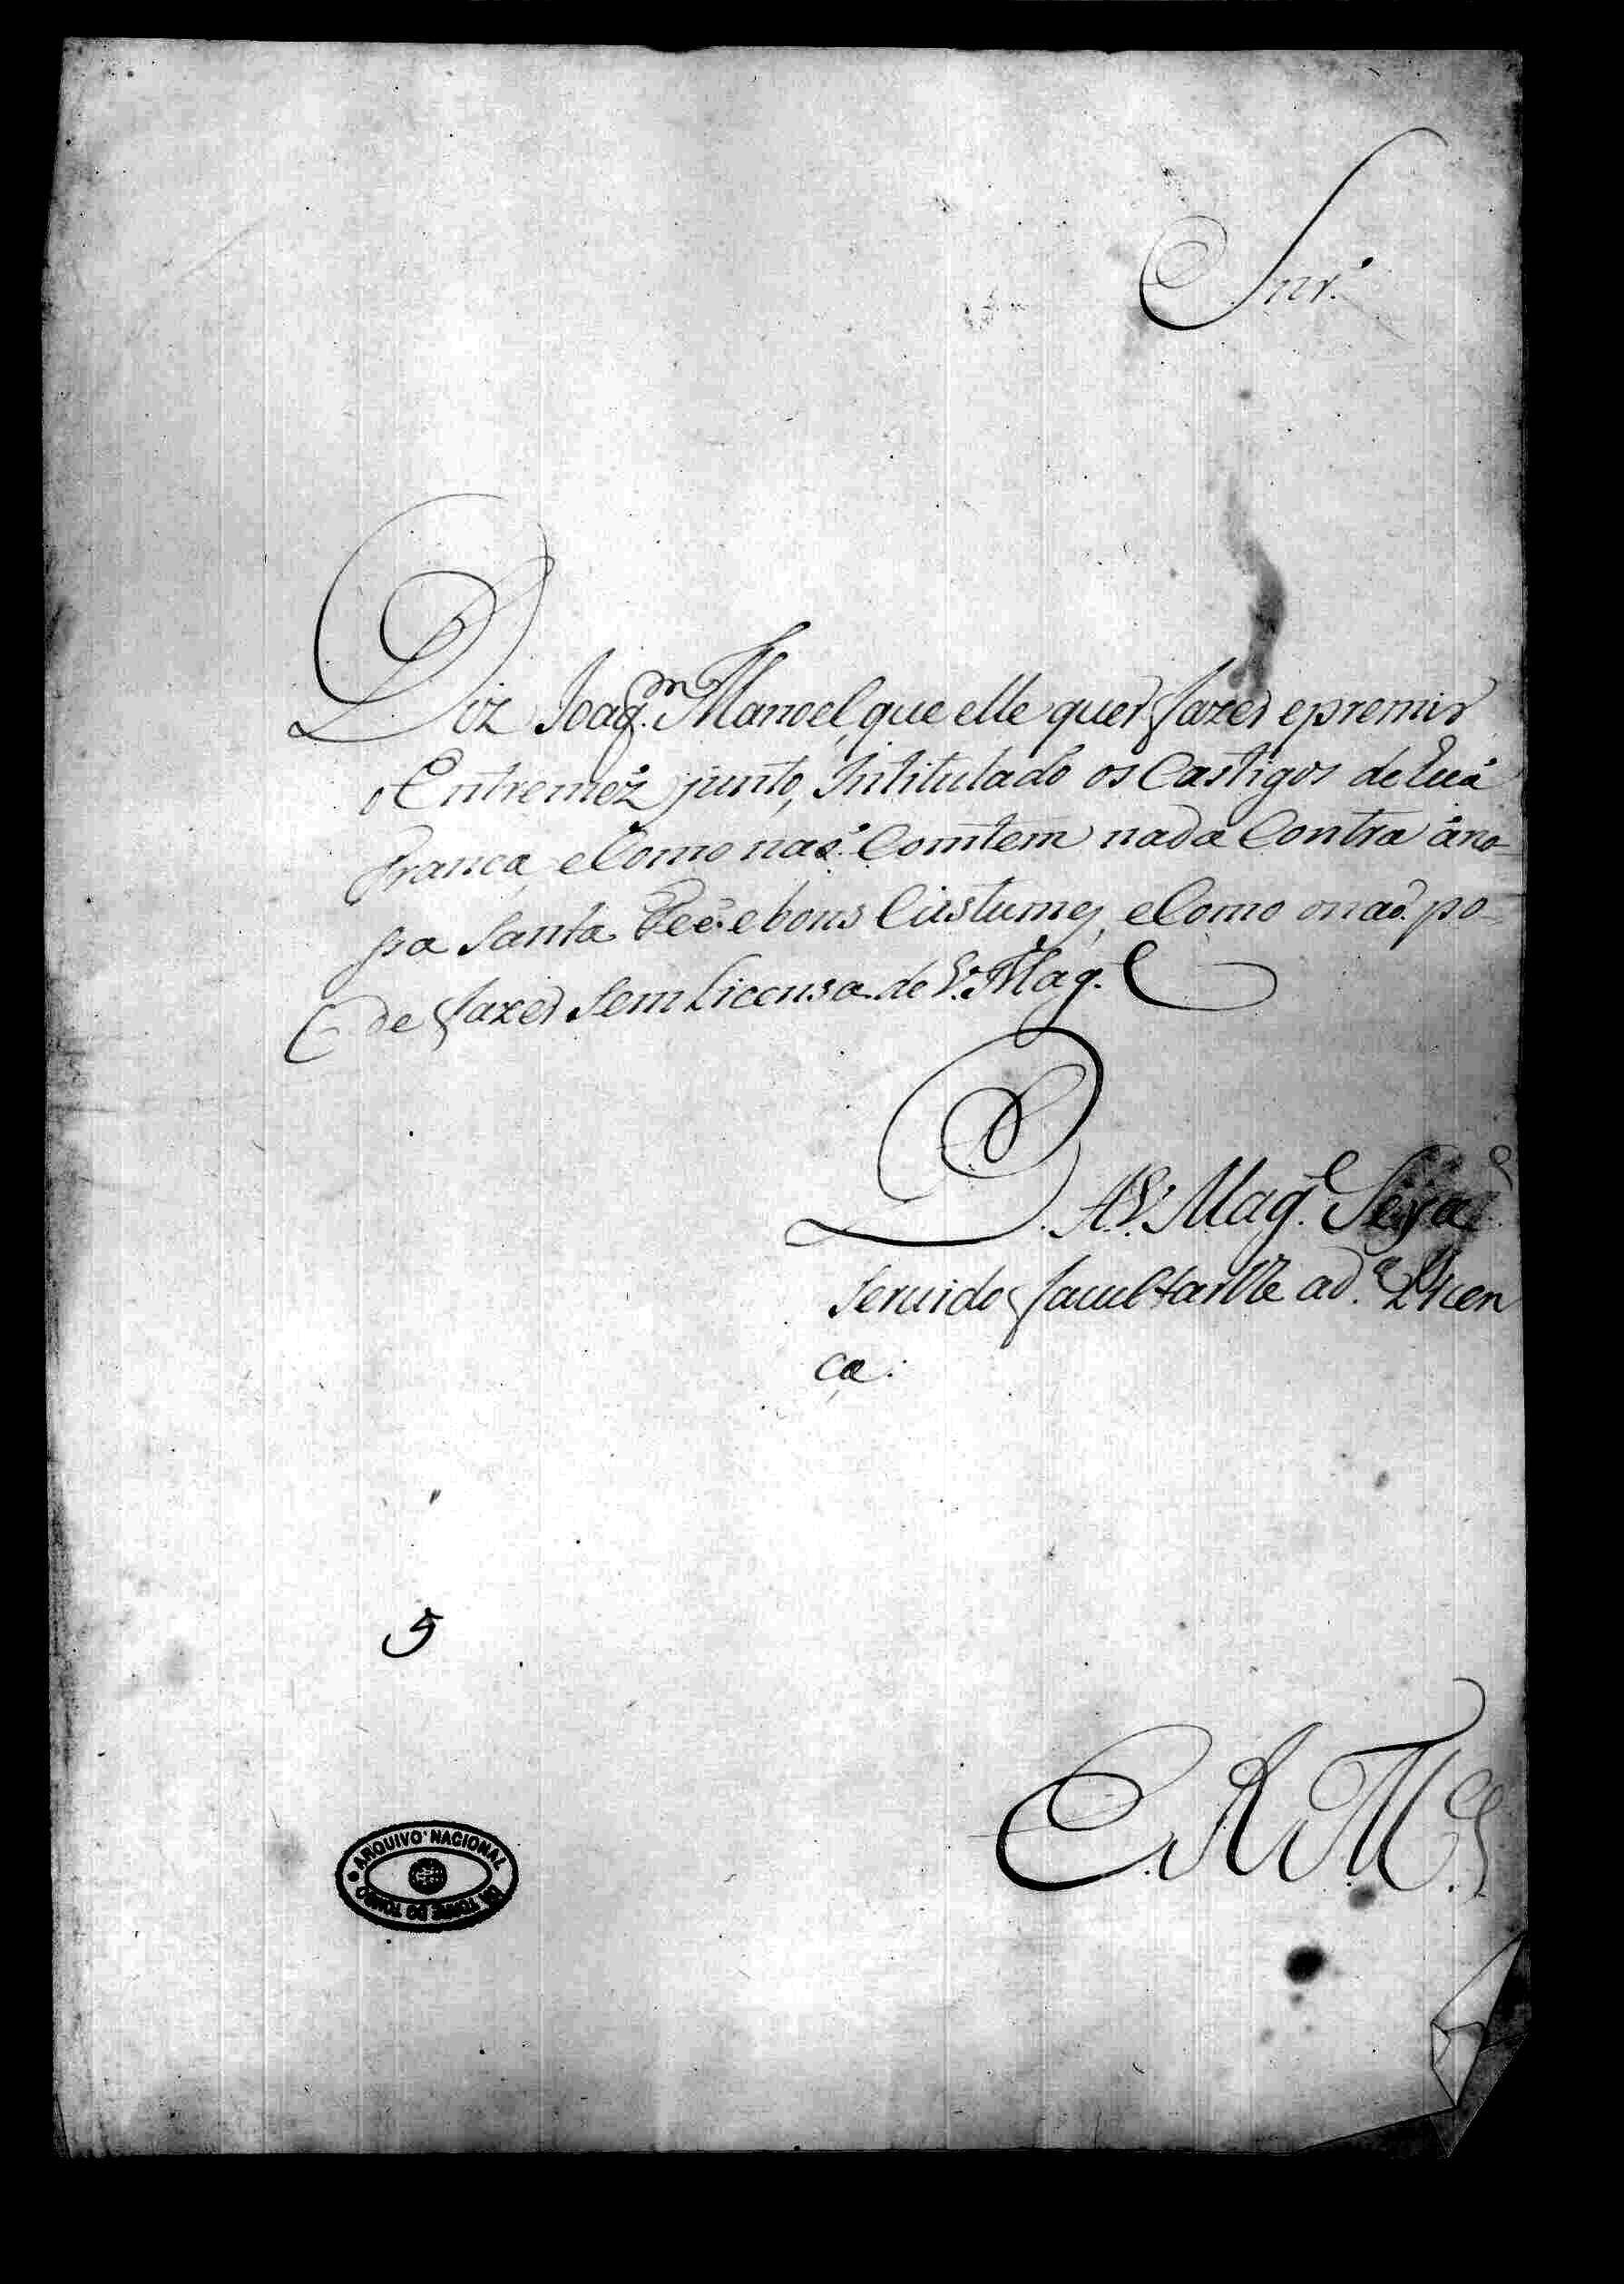 Snr.
Diz Joaq.m Manoel, que elle quer fazer epremir
o Entremêz junto, Intitulado os Castigos de
Franca, e Como naõ Comtem nada Contra áno-
ssa Santa Feé. e bons Custumes, e Como o naõ po-
de fazer Sem Licensa de V. Mag.e
P. A V. Mag.e Seja
Seruido facultarlhe a d.a Licen
ça.
5
E. R. M.ce
ARQUIVO NACIONAL
DA TORRE DO TOMBO